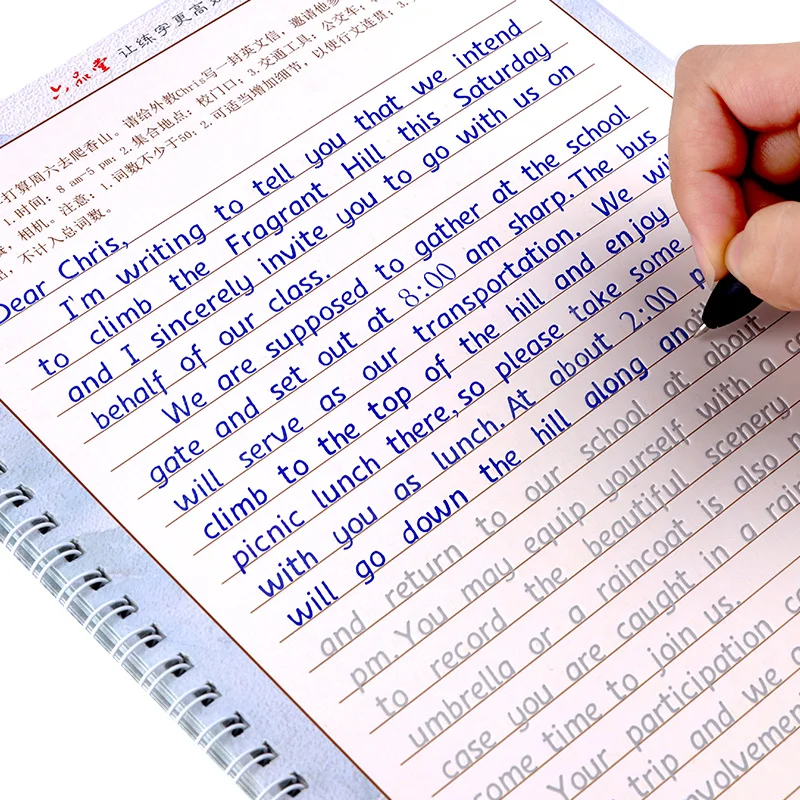 六品堂 让练字更高效
打算周六去爬香山。请给外教Chris写一封英文信，邀请他参
1.时间：8 am-5 pm；2.集合地点：校门口；3.交通工具：公交车；
相机。注意：1.词数不少于50；2.可适当增加细节，以使行文连贯；3.
不计入总词数。
Dear Chris,
I'm writing to tell you that we intend
to climb the Fragrant Hill this Saturday
and I sincerely invite you to go with us on
behalf of our class.
We are supposed to gather at the school
gate and set out at 8:00 am sharp. The bus
will serve as our transportation. We will
climb to the top of the hill and enjoy
picnic lunch there, so please take some
with you as lunch. At about 2:00 p
will go down the hill along another
and return to our school at about
pm. You may equip yourself with a ca
to record the beautiful scenery
umbrella or a raincoat is also
case you are caught in a rain
some time to join us.
Your participation
trip and we
involvement